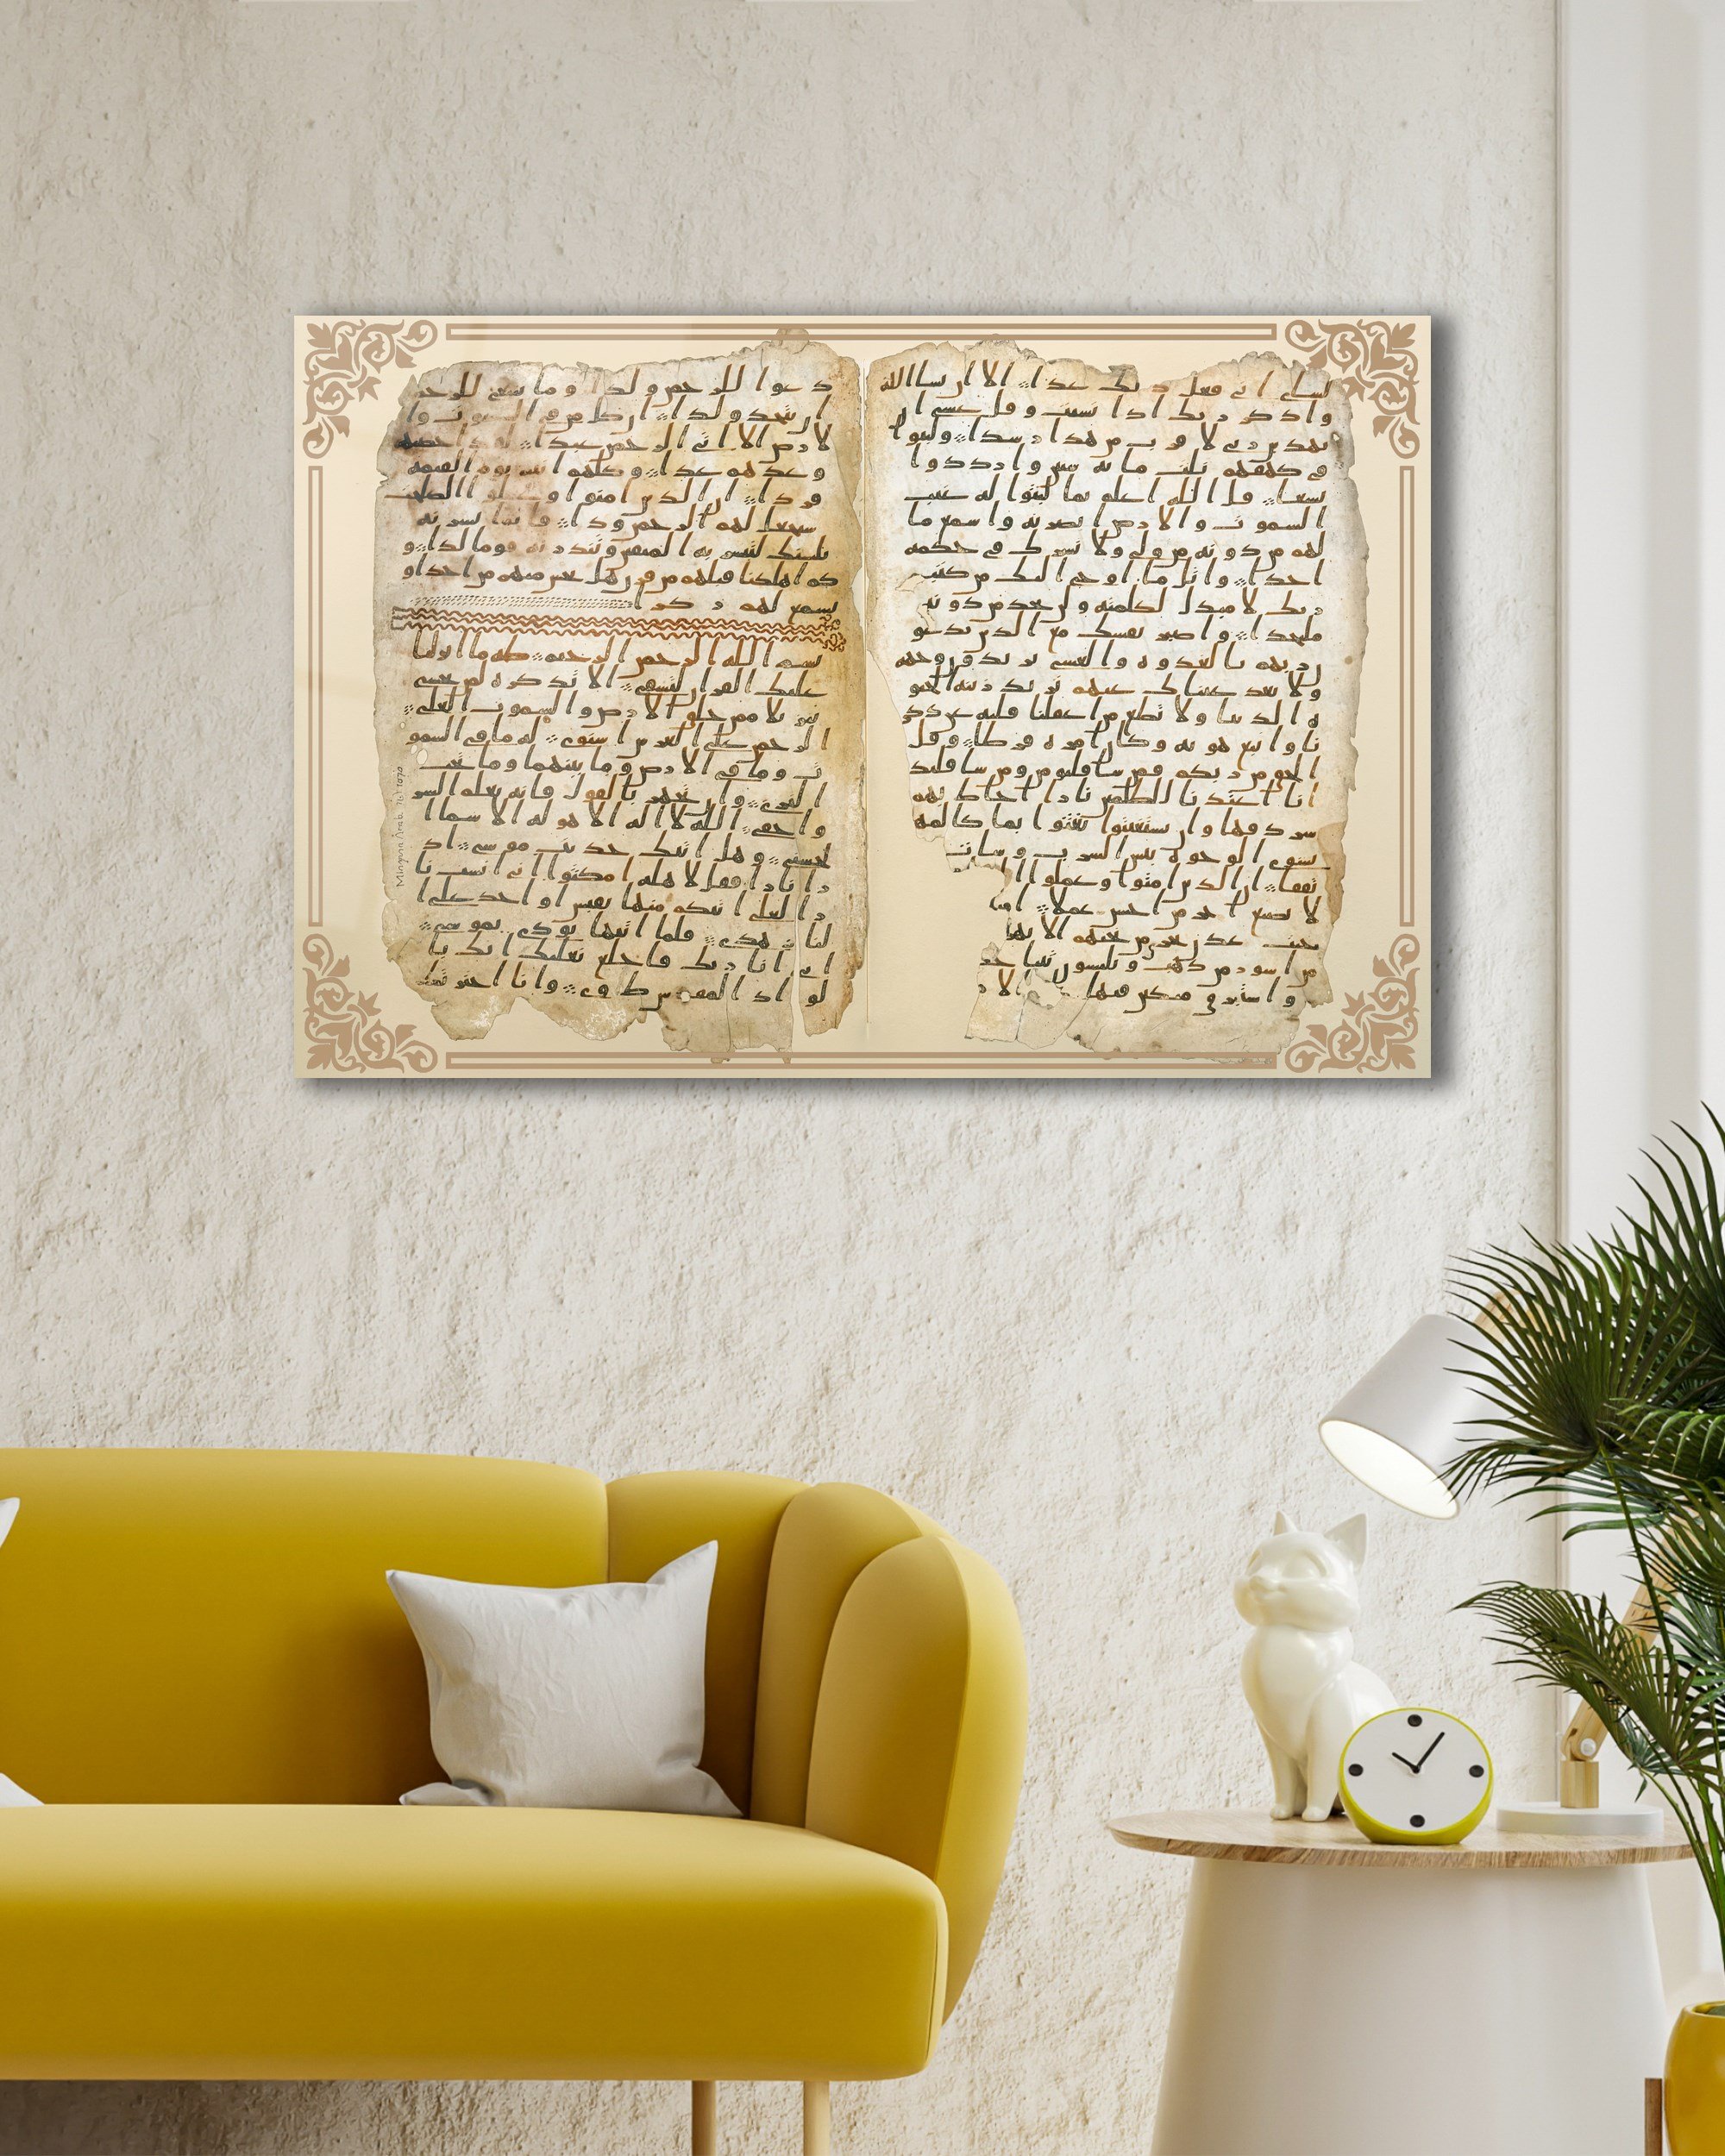 لشاي اني فعل ذلك غدا الا ان يشا الله
واذكر ربك اذا نسيت وقل عسى ا
يهدين ربي لاقرب من هذا رشدا ولبثوا
في كهفهم ثلث مايه سنين وازدادوا
تسعا قل الله اعلم بما لبثوا له غيب
السموت والارض ابصر به واسمع ما
لهم من دونه من ولي ولا يشرك في حكمه
احدا واتل ما اوحي اليك من كتب
ربك لا مبدل لكلمته ولن تجد من دونه
ملتحدا واصبر نفسك مع الذين يدعو
ن ربهم بالغدوه والعشي يريدون وجهه
ولا تعد عيناك عنهم تريد زينه الحيو
ه الدنيا ولا تطع من اغفلنا قلبه عن ذكر
نا واتبع هويه وكان امره فرطا وقل
الحق من ربكم فمن شا فليومن ومن شا فليكفر
انا اعتدنا للظلمين نارا احاط بهم
سردقها وان يستغيثوا يغثوا بما كالمهل
يشوي الوجوه بيس الشراب وسات
مرتفقا ان الذين امنوا وعملوا ا
لا نضيع اجر من احسن عملا
تحتهم الانهر
من اسور من ذهب ويلبسون ثيابا خضر
واستبرق متكين فيها الار
دعوا للرحمن ولدا وما ينبغي للرحمن
ان يتخذ ولدا ان كل من في السموت وا
لارض الا اتي الرحمن عبدا لقد احصيهم
وعدهم عدا وكلهم اتيه يوم القيمه
فردا ان الذين امنوا وعملوا الصلحت
سيجعل لهم الرحمن ودا فانما يسرنه
بلسنك لتبشر به المتقين وتنذر به قوما لدا و
كم اهلكنا قبلهم من قرن هل تحس منهم من احد او
تسمع لهم ركزا
بسم الله الرحمن الرحيم طه ما انزلنا
عليك القران لتشقى الا تذكره لمن يخشى
تنزيلا ممن خلق الارض والسموت العلى
الرحمن على العرش استوى له ما في السمو
ت وما في الارض وما بينهما وما تحت
الثرى وان تجهر بالقول فانه يعلم السر
واخفى الله لا اله الا هو له الاسما ا
لحسنى وهل اتيك حديث موسى اذ
را نارا فقل لاهله امكثوا اني انست نا
را لعلي اتيكم منها بقبس او اجد على ا
لنار هدى فلما اتيها نودي يموسى
اني انا ربك فاخلع نعليك انك با
لواد المقدس طوى وانا اخترتك
Mingana Arab. Isl. 1572a